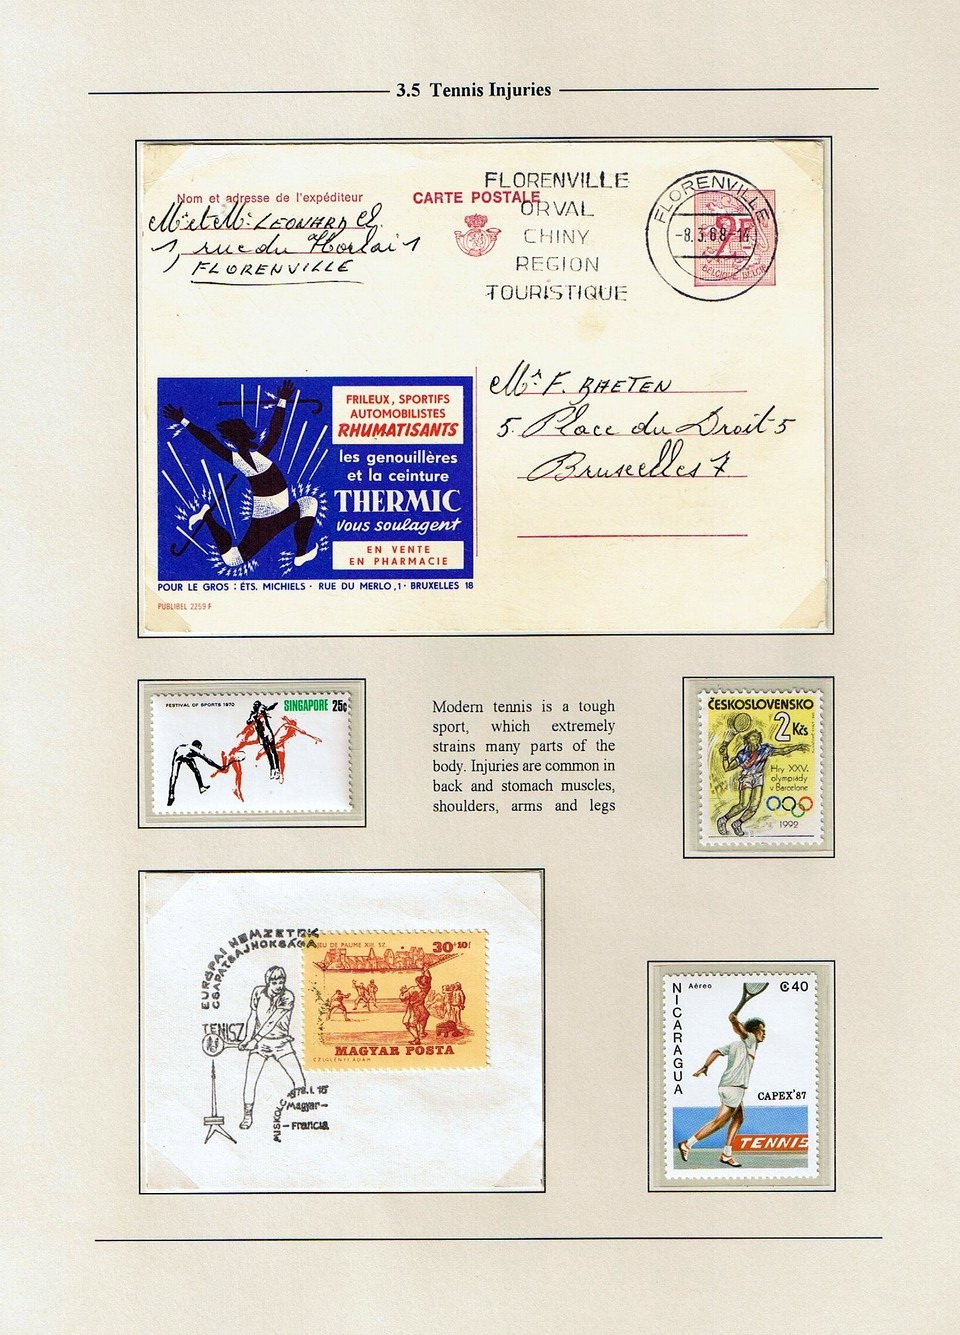 3.5 Tennis Injuries
Nom et adresse de l'expéditeur
CARTE POSTALE
LEONARD
1, rue du
FLORENVILLE
FLORENVILLE
ORVAL
CHINY
REGION
TOURISTIQUE
FLORENVILLE
-8.3.68-14
2F
BELGIQUE-BELGIE
Mr F. BAETEN
5. Place du Droit 5
Bruxelles 7
FRILEUX, SPORTIFS
AUTOMOBILISTES
RHUMATISANTS
les genouillères
et la ceinture
THERMIC
vous soulagent
EN VENTE
EN PHARMACIE
POUR LE GROS : ÉTS. MICHIELS · RUE DU MERLO,1 · BRUXELLES 18
PUBLIBEL 2259 F
FESTIVAL OF SPORTS 1970
SINGAPORE 25c
Modern tennis is a tough
sport, which extremely
strains many parts of the
body. Injuries are common in
back and stomach muscles,
shoulders, arms and legs
ČESKOSLOVENSKO
2 Kčs
Hry XXV.
olympiády
v Barceloně
1992
EURÓPAI NEMZETEK
CSAPATBAJNOKSÁGA
TENISZ
MISKOLC
Magyar-
-Francia
JEU DE PAUME XIII. SZ.
30+10f
MAGYAR POSTA
CZIGLÉNYI ÁDÁM
NICARAGUA
Aéreo
₡40
CAPEX'87
TENNIS